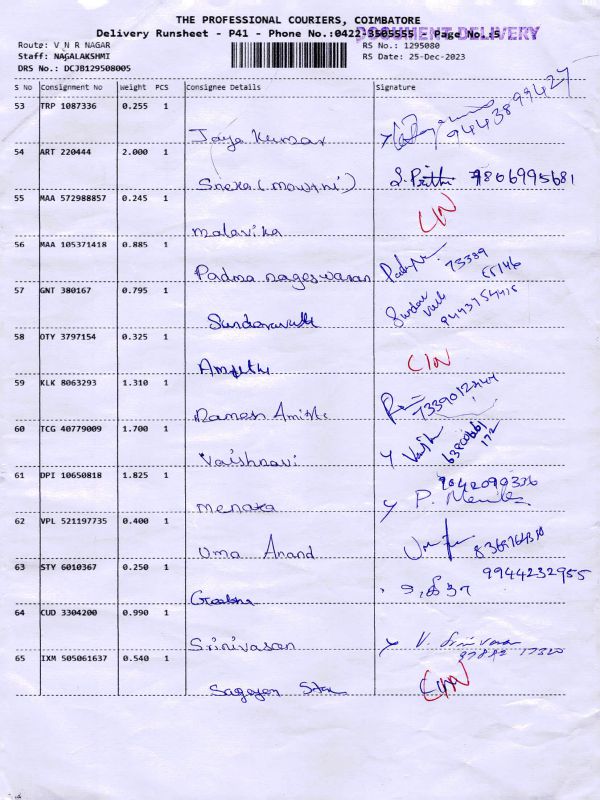 THE PROFESSIONAL COURIERS, COIMBATORE
Delivery Runsheet - P41 - Phone No.:0422-3505555 Page No.:5
DOCUMENT DELIVERY
Route: V N R NAGAR RS No.: 1295080
Staff: NAGALAKSHMI RS Date: 25-Dec-2023
DRS No.: DCJB129508005
S No Consignment No Weight PCS Consignee Details Signature
53 TRP 1087336 0.255 1
Jaya Kumar 9443899427
54 ART 220444 2.000 1
Sneka (mowni) S. Prithi 9806995681
55 MAA 572988857 0.245 1
malavika
56 MAA 105371418 0.885 1
Padma nageswaran 73339
57 GNT 380167 0.795 1
Sundaravalli Sundara valli
58 OTY 3797154 0.325 1
59 KLK 8063293 1.310 1
Ramesh
60 TCG 40779009 1.700 1
Vaishnavi
61 DPI 10650818 1.825 1
menaka
62 VPL 521197735 0.400 1
Uma Anand
63 STY 6010367 0.250 1
9944232955
64 CUD 3304200 0.990 1
Srinivasan V. Srinivasan
65 IXM 505061637 0.540 1